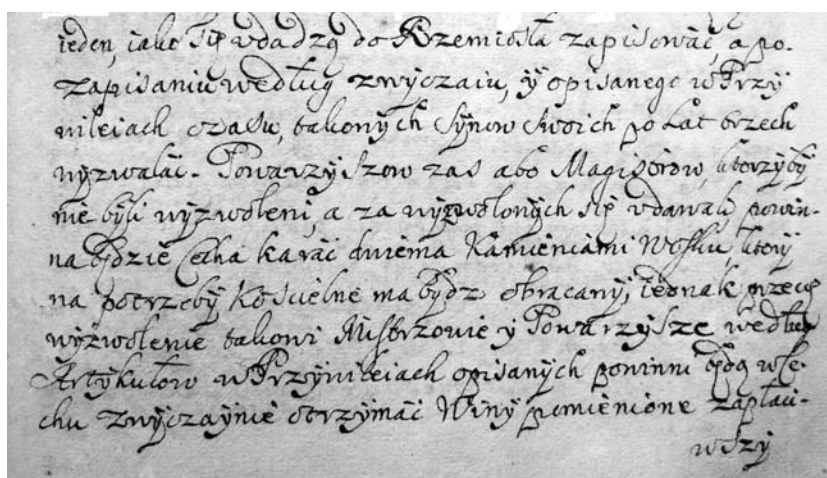 ieden, iako się vdadzą do Rzemiosła zapisować, a po.
zapisaniu według zwyczaiu, y opisanego w Przy
wileiach czasu, takowych Synow swoich po Lat trzech
wyzwalać. Towarzyszow zas abo Magistrow, ktorzyby
nie byli wyzwoleni, a za wyzwolonych się vdawali, powin-
na będzie Cecha karać dwiema Kamieniami Wosku, ktory
na potrzeby Koscielne ma bydz obracany, iednak przecię
wyzwolenie takowi Mistrzowie y Towarzysze według
Artykułow w Przywileiach opisanych powinni będą w Ce-
chu zwyczaynie otrzymać Winy pomienione zapłaci-
wszy